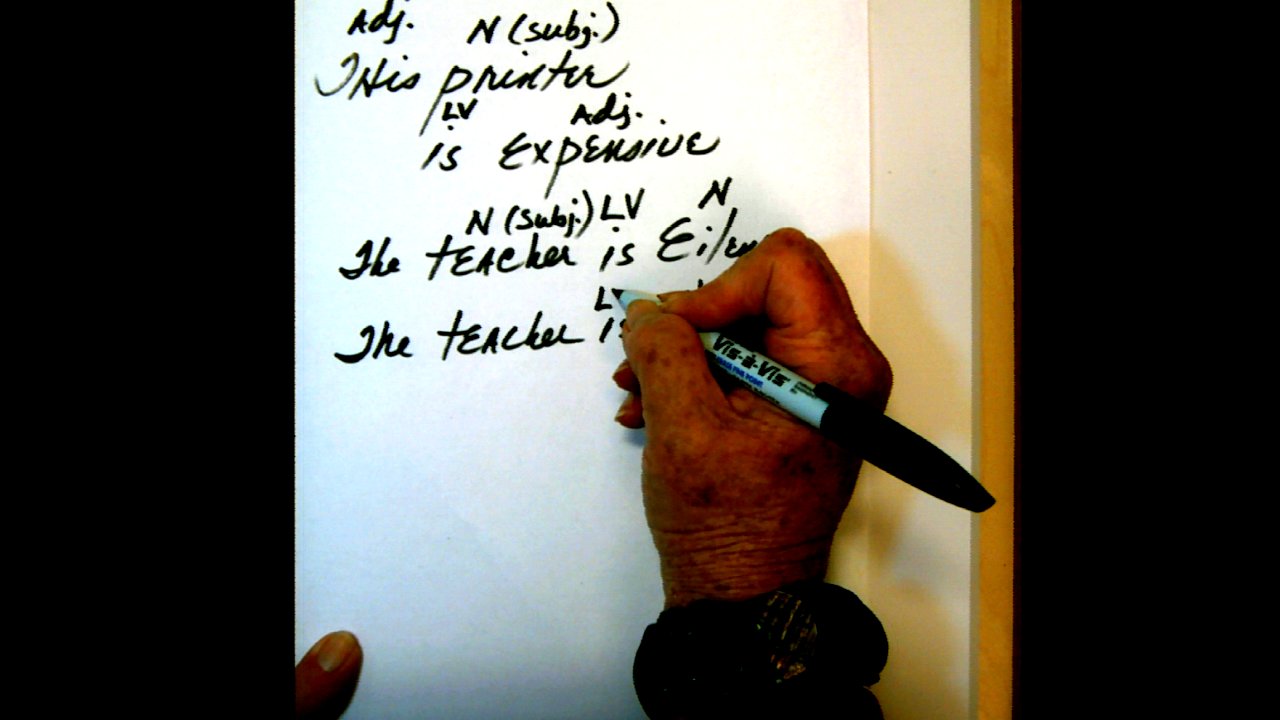 Adj. N (subj.)
This printer
LV Adj.
is Expensive
N (subj.) LV N
The teacher is
L
The teacher is
Vis-à-Vis